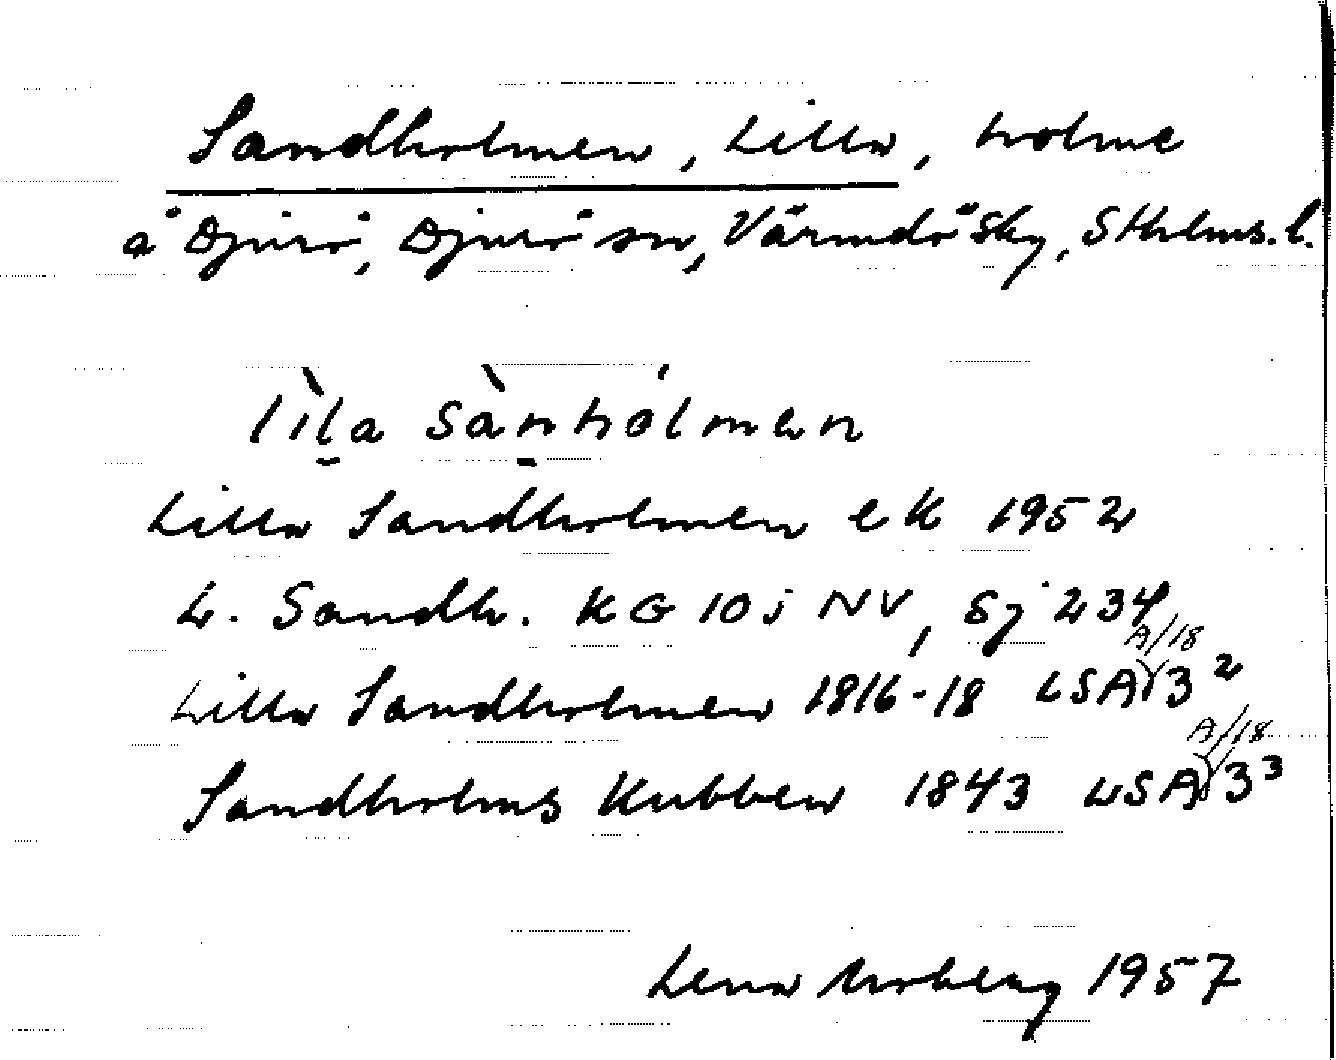 Sandholmen, Lilla, holme
å Djurö, Djurö sn, Värmdö sky, Sthlms. l.
lìl̠a sàn̠hólmen
Lilla Sandholmen ek 1952
L. Sandh. KG 10 j NV, Sj 234
Lilla Sandholmen 1816-18 LSA A/18 3²
Sandholms Kubben 1843 LSA A/18 3³
Lena Moberg 1957